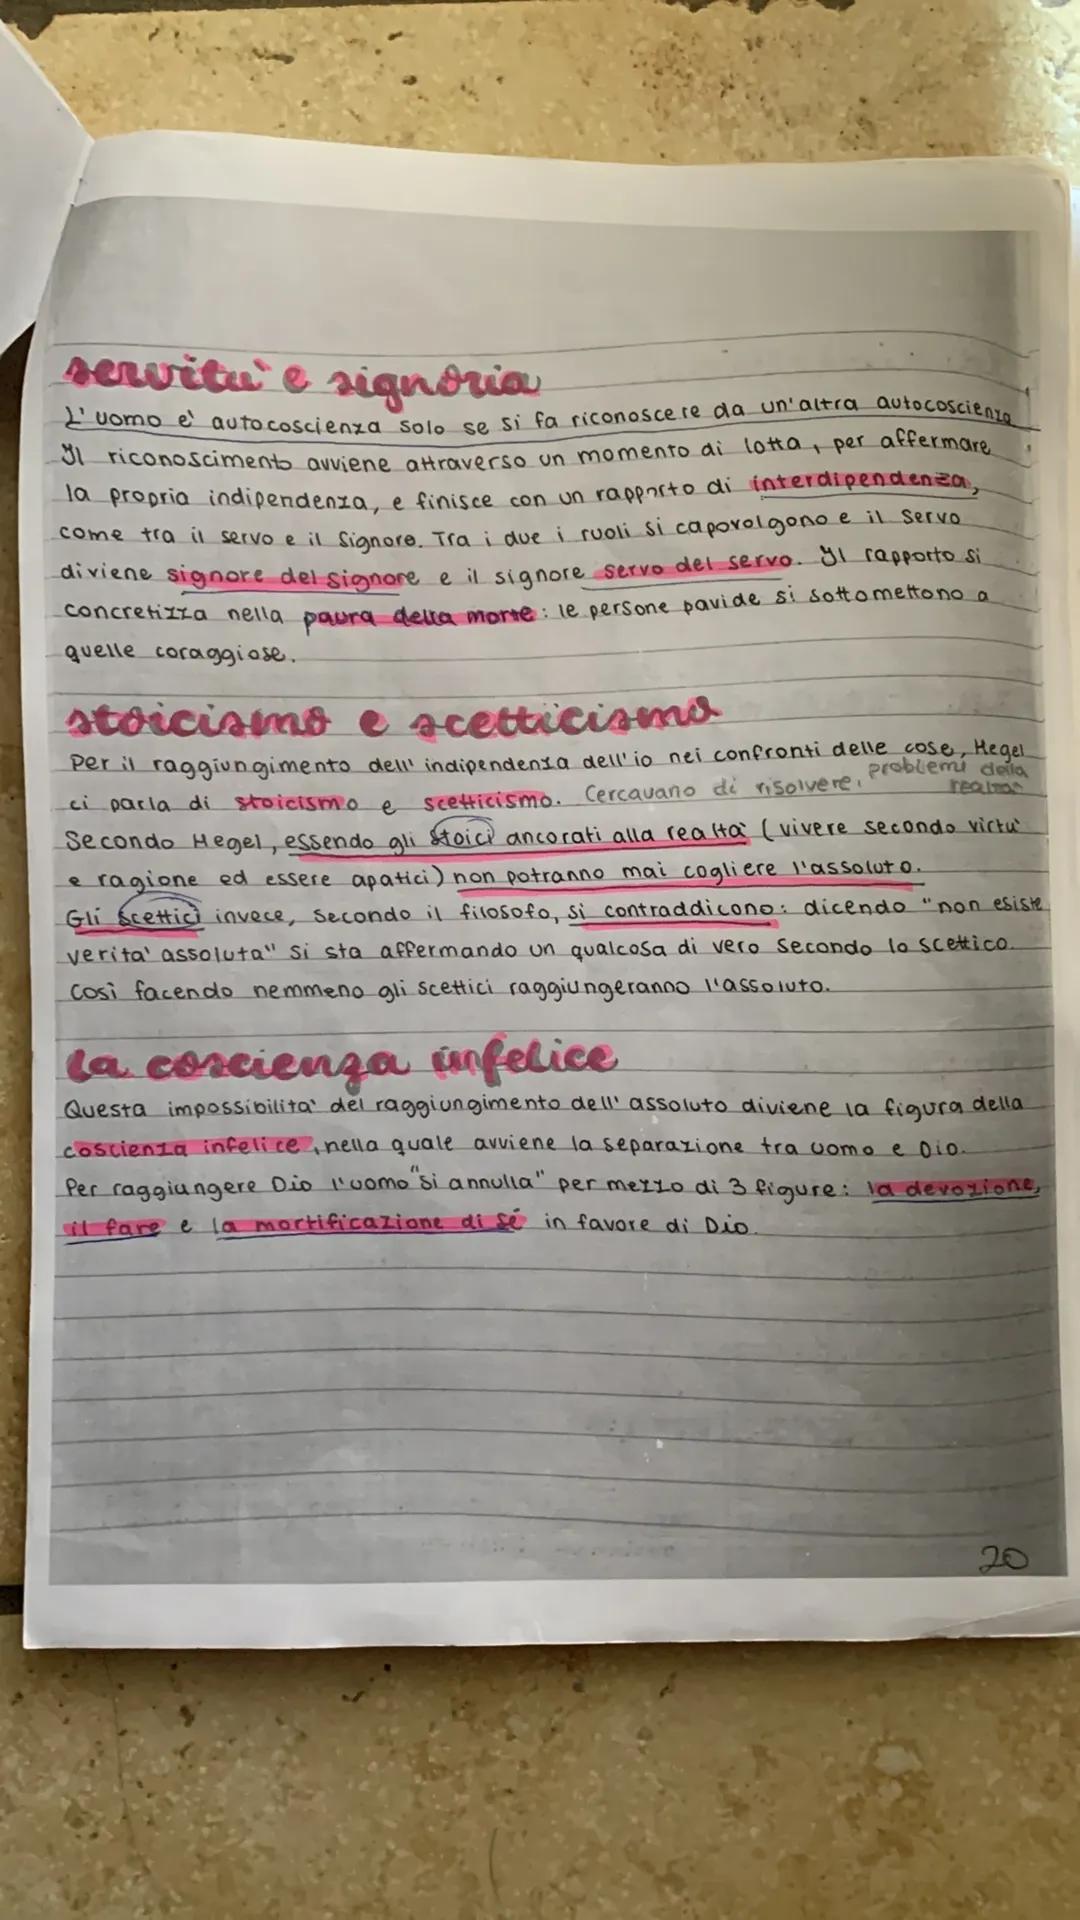 servitu' e signoria
L'uomo e' autocoscienza solo se si fa riconoscere da un'altra autocoscienza
Il riconoscimento avviene attraverso un momento di lotta, per affermare
la propria indipendenza, e finisce con un rapporto di interdipendenza,
come tra il servo e il Signore. Tra i due i ruoli si capovolgono e il servo
diviene signore del signore e il signore servo del servo. Il rapporto si
concretizza nella paura della morte: le persone pavide si sottomettono a
quelle coraggiose.
stoicismo e scetticismo
Per il raggiungimento dell'indipendenza dell'io nei confronti delle cose, Hegel
ci parla di stoicismo e scetticismo. Cercavano di risolvere i problemi della
realtà
Secondo Hegel, essendo gli stoici ancorati alla realta' (vivere secondo virtu'
e ragione ed essere apatici) non potranno mai cogliere l'assoluto.
Gli scettici invece, secondo il filosofo, si contraddicono: dicendo "non esiste
verita' assoluta" si sta affermando un qualcosa di vero secondo lo scettico.
Così facendo nemmeno gli scettici raggiungeranno l'assoluto.
la coscienza infelice
Questa impossibilita' del raggiungimento dell'assoluto diviene la figura della
coscienza infelice, nella quale avviene la separazione tra uomo e Dio.
Per raggiungere Dio l'uomo "si annulla" per mezzo di 3 figure: la devozione,
il fare e la mortificazione di sé in favore di Dio.
20